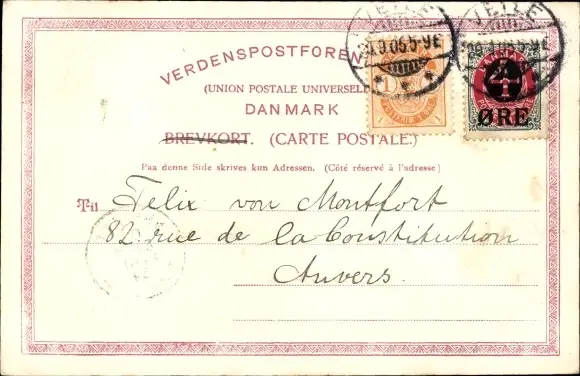 VERDENSPOSTFOREN
(UNION POSTALE UNIVERSEL
DANMARK
BREVKORT. (CARTE POSTALE.)
Paa denne Side skrives kun Adressen. (Côté réservé à l'adresse)
Til Felix von Montfort
82 rue de la Constitution
Anvers.
VEJLE
5-9E
VEJLE
5-9E
1
4
ØRE